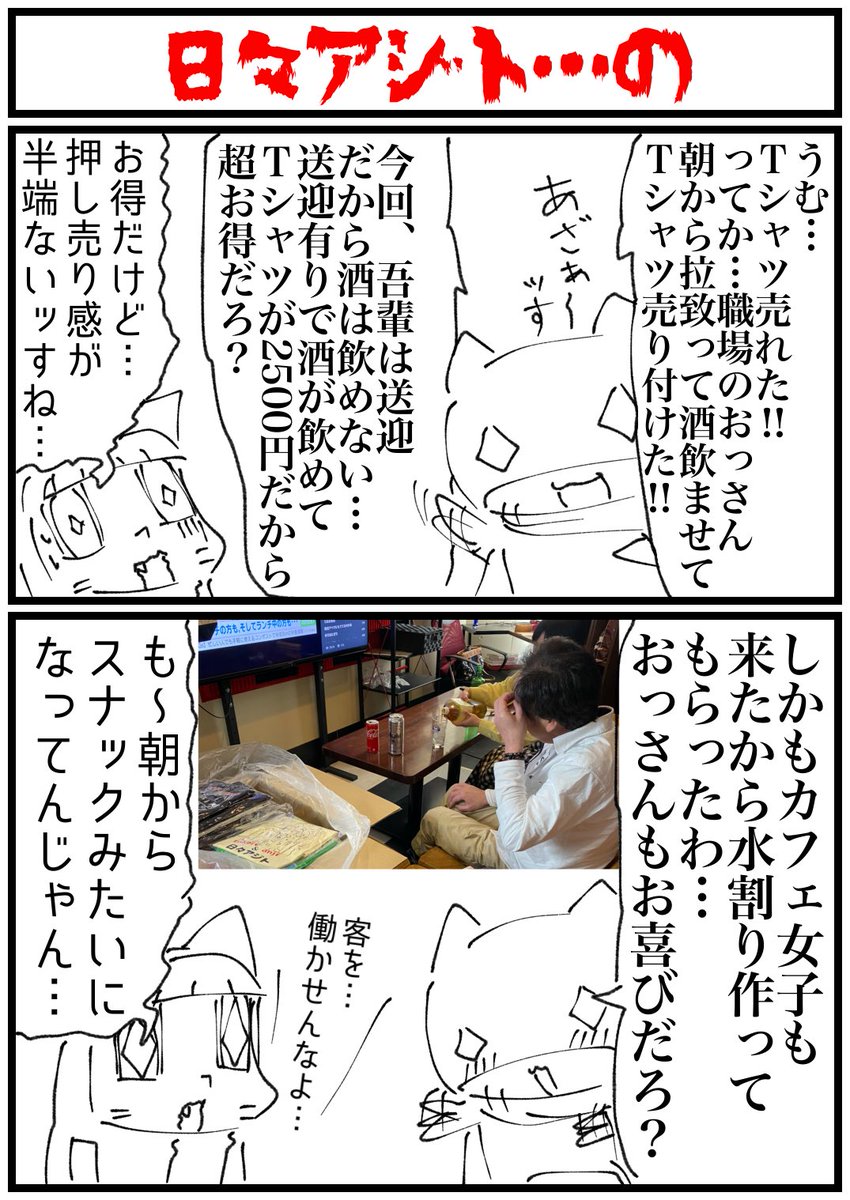 日々アジト…の
うむ…
Tシャツ売れた!!
ってか…職場のおっさん
朝から拉致って酒飲ませて
Tシャツ売り付けた!!
あざぁ〜
ッす
今回、吾輩は送迎
だから酒は飲めない…
送迎有りで酒が飲めて
Tシャツが2500円だから
超お得だろ?
お得だけど…
押し売り感が
半端ないッすね…
しかもカフェ女子も
来たから水割り作って
もらったわ…
おっさんもお喜びだろ?
チの方も、そしてランチ中の方も…
日々アジト
客を…
働かせんなよ…
も〜朝から
スナックみたいに
なってんじゃん…